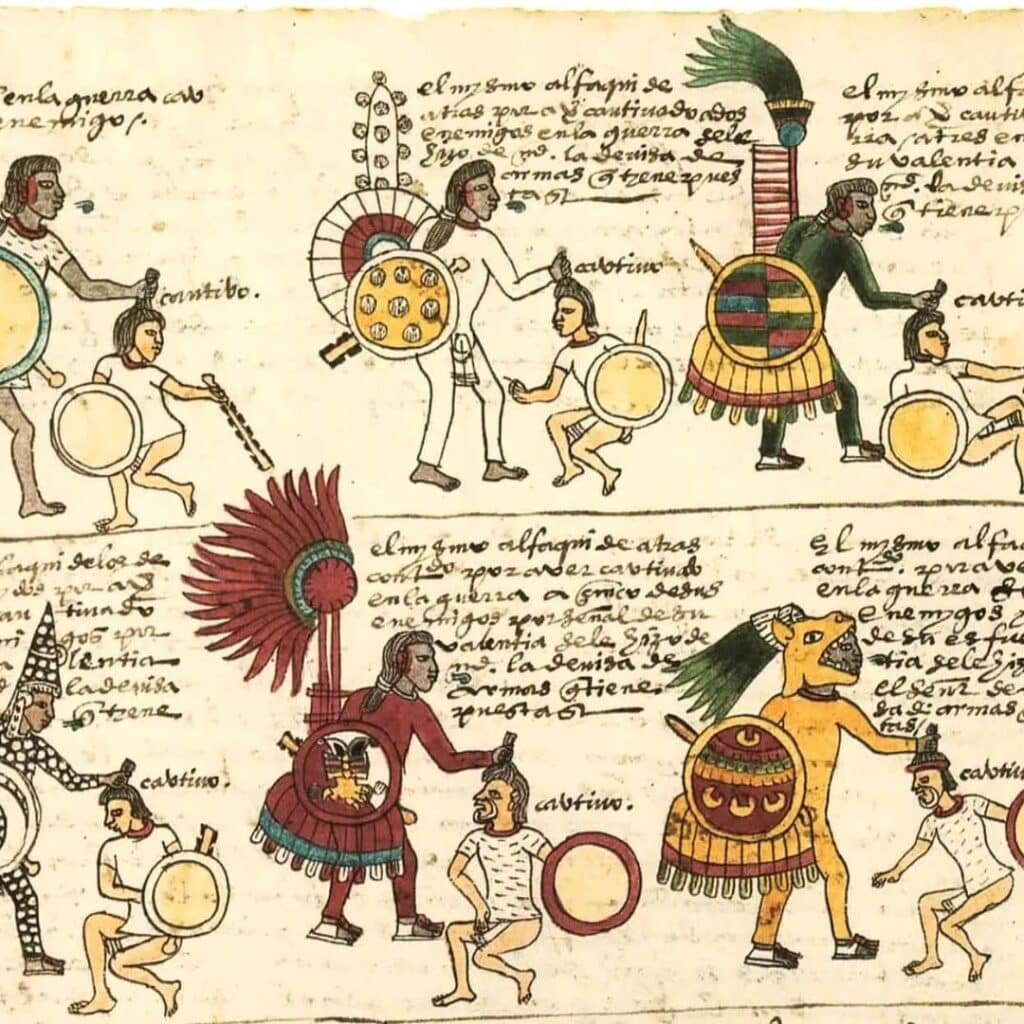 en la guerra cau
enemigos.
cautibo.
el mysmo alfaqui de
atras por a ũ cautivado a dos
enemigos en la guerra sele
hizo de md. la devisa de
armas q̃ tiene pues
tas
cautivo
el mysmo alf
por a ũ cauti
rra a tres en
su valentia
md. la devis
q̃ tiene p
cauti
faqui delos de
dos por a ũ
cau tivado
mi gos por
lentia
la devisa
q̃ tiene
cautivo.
el mysmo alfaqui de atras
contdo por aver cautivado
en la guerra a cinco de sus
enemigos por señal de su
valentia sele hizo de
md. la devisa de
armas q̃ tiene
puestas
cautivo.
El mysmo alfa
contdo. por ave
en la guerra
Enemygos y
de su esfue
tia sele hiz
el señor de
sa de armas
tas
cautivo